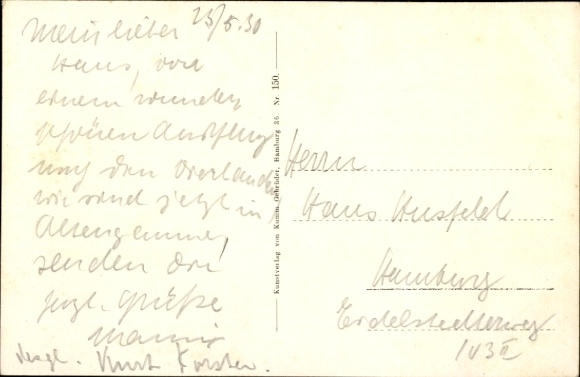 25/5.30
Mein lieber
Hans, von
einem wunder
schönen Ausflug
nach den Vierlanden,
wir sind jetzt in
Altengamme,
senden Dir
hrzl. Grüße
desgl. Kurt Forster.
Kunstverlag von Kumm. Gebrüder, Hamburg 26 Nr. 150.
Herrn
Hans Husfeldt
Hamburg
Eidelstedterweg
103 II